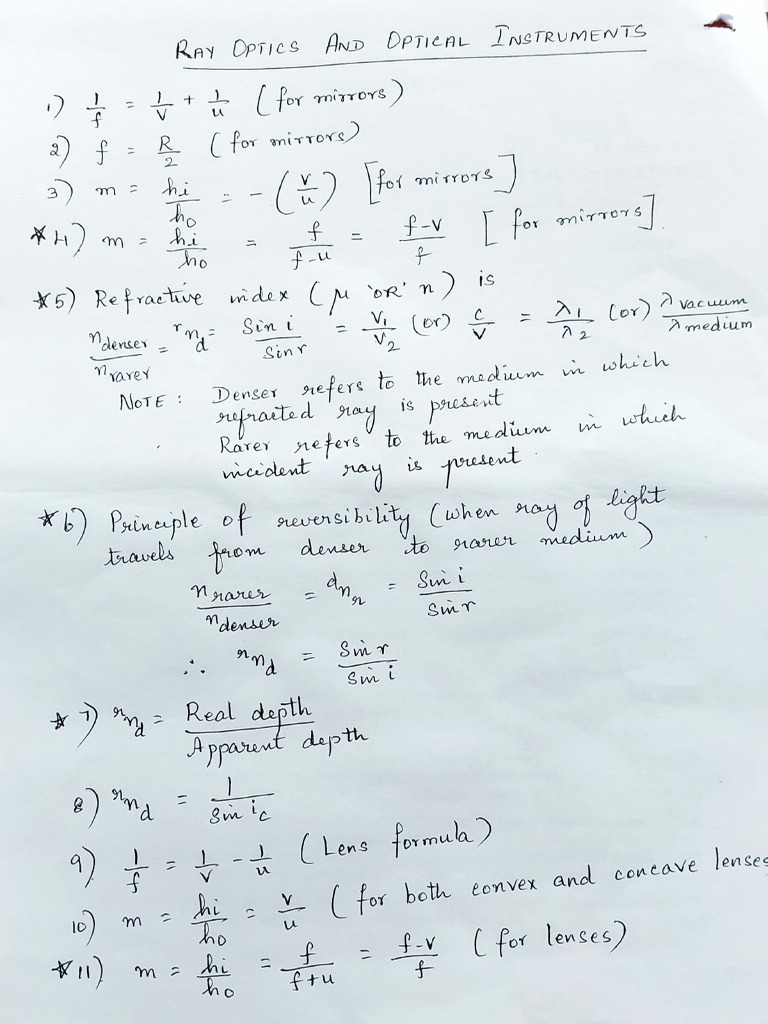 RAY OPTICS AND OPTICAL INSTRUMENTS
1) 1/f = 1/v + 1/u (for mirrors)
2) f = R/2 (for mirrors)
3) m = hi/ho = - (v/u) [for mirrors]
*4) m = hi/ho = f/f-u = f-v/f [for mirrors].
*5) Refractive index (μ 'OR' n) is
n denser/n rarer = ʳn_d = Sin i/Sin r = V₁/V₂ (or) c/v = λ₁/λ₂ (or) λ vacuum/λ medium
NOTE : Denser refers to the medium in which
refracted ray is present
Rarer refers to the medium in which
incident ray is present.
*6) Principle of reversibility (when ray of light
travels from denser to rarer medium)
n rarer/n denser = ᵈn_r = Sin i/Sin r
∴ ʳn_d = Sin r/Sin i
*7) ʳn_d = Real depth/Apparent depth
8) ʳn_d = 1/Sin i_c
9) 1/f = 1/v - 1/u (Lens formula)
10) m = hi/ho = v/u (for both convex and concave lenses
*11) m = hi/ho = f/f+u = f-v/f (for lenses)